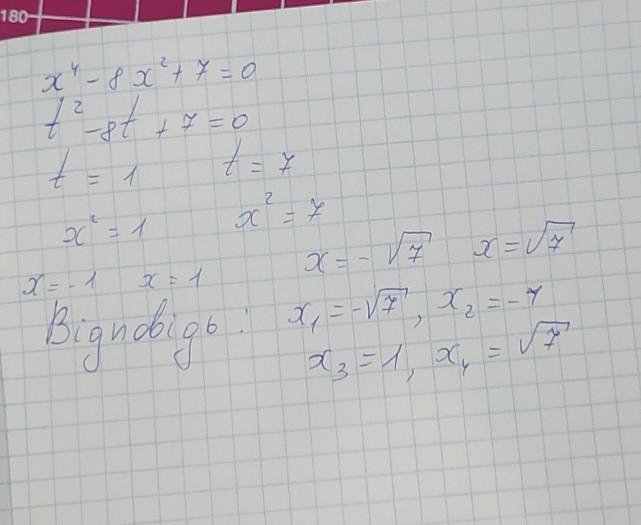 180
x⁴ - 8x² + 7 = 0
t² - 8t + 7 = 0
t = 1 t = 7
x² = 1 x² = 7
x = -1 x = 1 x = -√7 x = √7
Відповідь: x₁ = -√7, x₂ = -1
x₃ = 1, x₄ = √7